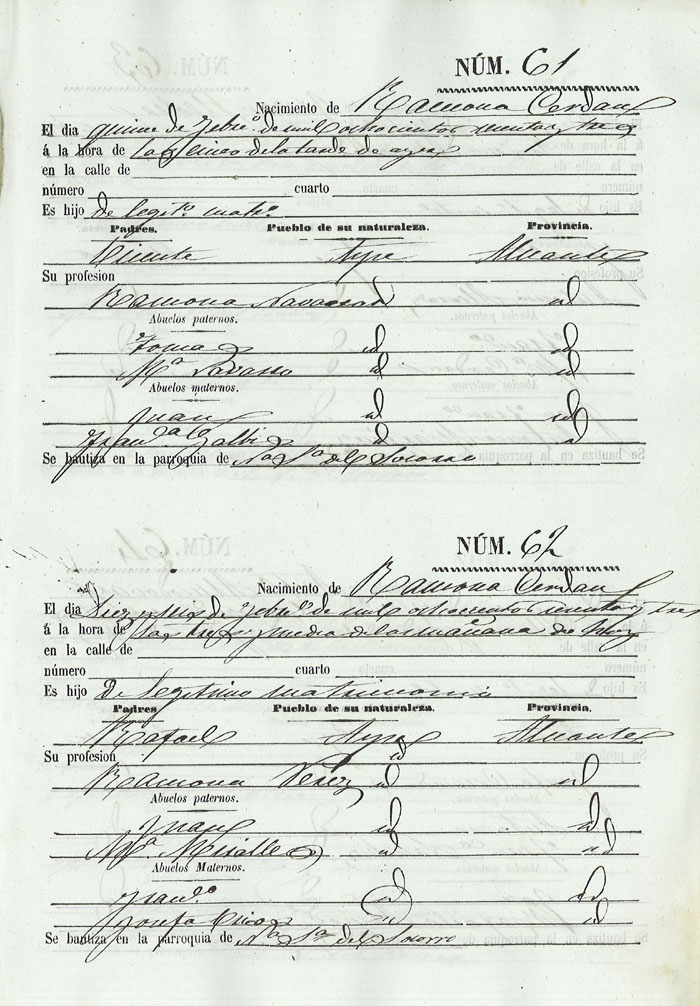 NÚM. 61
Nacimiento de Ramona Cerdan
El dia quince de Febro. de mil ochocientos sesenta y tres
á la hora de las cinco de la tarde de ayer
en la calle de
número cuarto
Es hijo de legito. mato.
Padres. Pueblo de su naturaleza. Provincia.
Vicente Aspe Alicante
Su profesion
Ramona Navarro id id
Abuelos paternos.
Tomas id id
Ma. id id
Abuelos maternos.
Juan id id
id id
Se bautiza en la parroquia de Na. Sa. del Socorro
NÚM. 62
Nacimiento de Ramona Cerdan
El dia Diez y seis de Febro. de mil ochocientos sesenta y tres
á la hora de las tres y media de la mañana de hoy
en la calle de
número cuarto
Es hijo de legitimo matrimonio
Padres Pueblo de su naturaleza. Provincia.
Rafael Aspe Alicante
Su profesion
Ramona Perez id id
Abuelos paternos.
Juan id id
Ma. Miralles id id
Abuelos Maternos.
Franco. id id
Josefa id id
Se bautiza en la parroquia de Na. Sa. del Socorro